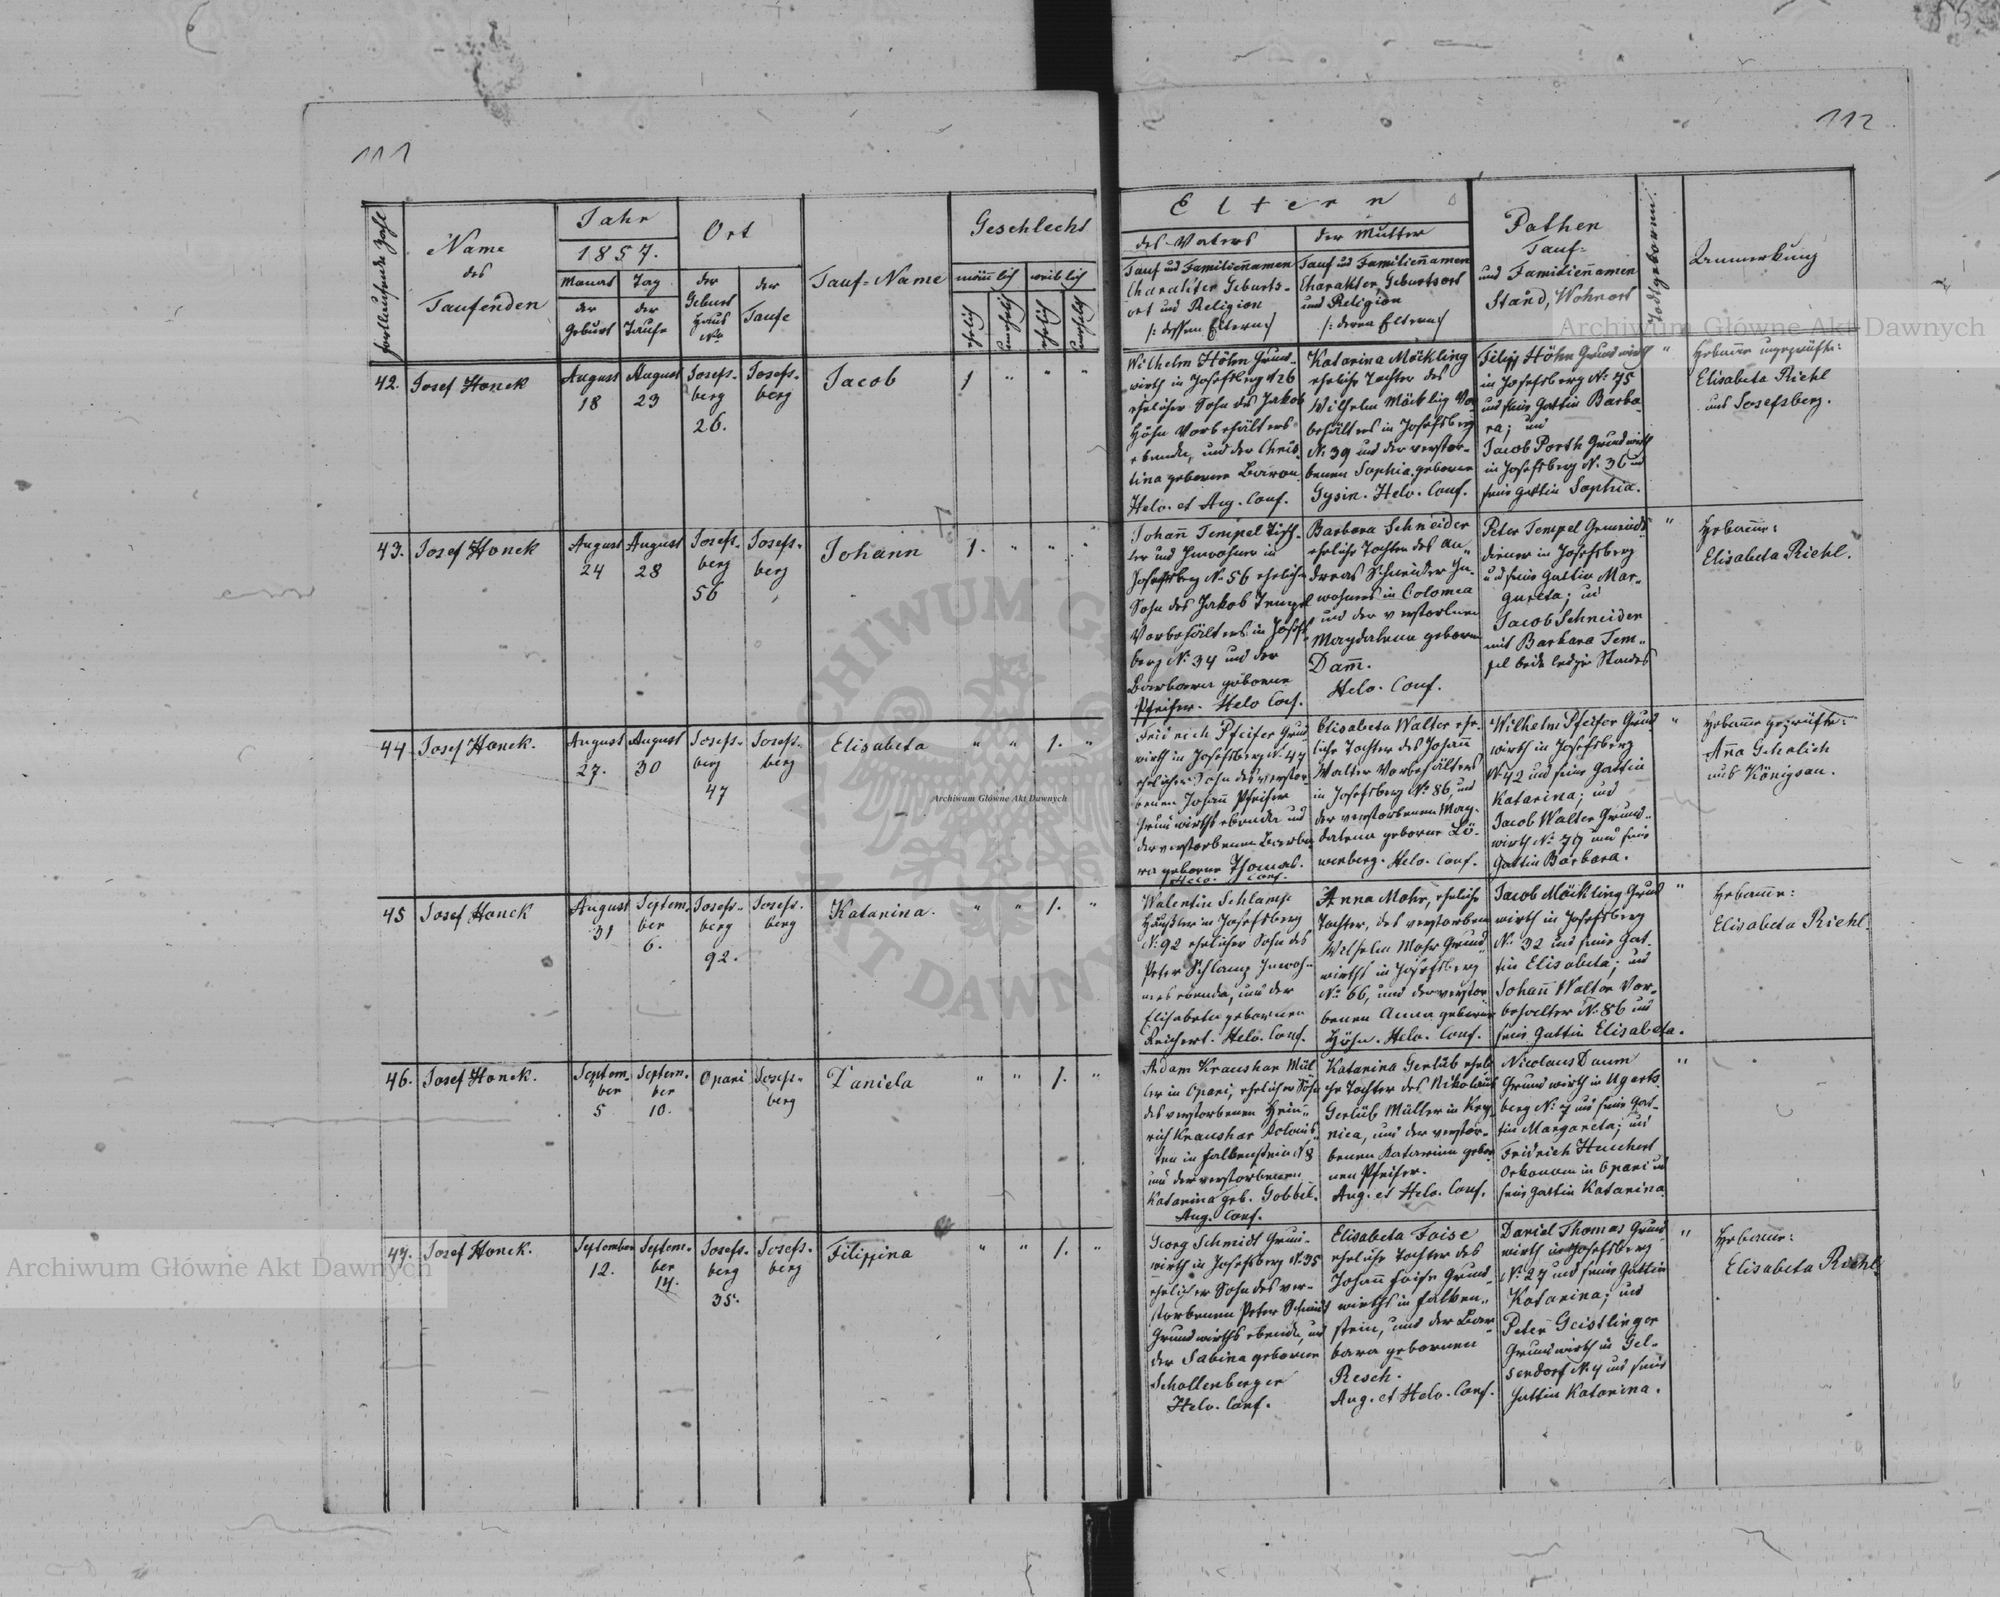 111
112
fortlaufende Zahl
Name
des
Taufenden
Jahr
1857.
Monat
der
Geburt
Tag
der
Taufe
Ort
der
Geburt
Haus
No
der
Taufe
Tauf-Name
Geschlecht
männlich
weiblich
ehelich
unehelich
ehelich
unehelich
Eltern
des Vaters
Tauf und Familiennamen
Charakter Geburts-
ort und Religion
/: dessen Eltern :/
der Mutter
Tauf und Familiennamen
Charakter, Geburtsort
und Religion
/: deren Eltern :/
Pathen
Tauf-
und Familiennamen
Stand, Wohnort
Todtgeboren.
Anmerkung
42.
Josef Honek
August
18
August
23
Josefs-
berg
26.
Josefs-
berg
Jacob
1 " " "
Wilhelm Höhn Grund-
wirth in Josefsberg N 26
ehelicher Sohn des Jakob
Höhn Vorbehälters
ebenda, und der Chris-
tina geborne Baron
Helv. et Aug. Conf.
Katarina Möckling
eheliche Tochter des
Wilhelm Möckling Vor
behälters in Josefsberg
N. 39 und der verstor-
benen Sophia, geborne
Gysin. Helv. Conf.
Filipp Höhn Grundwirth
in Josefsberg N: 75
und seine Gattin Barba-
ra; und
Jacob Porth Grundwirth
in Josefsberg N. 36 und
seine Gattin Sophia.
"
Hebamme ungeprüfte:
Elisabeta Riehl
aus Josefsberg.
43.
Josef Honek
August
24
August
28
Josefs-
berg
56
Josefs-
berg
Johann
1. " " "
Johann Tempel Tisch-
ler und Inwohner in
Josefsberg N. 56 ehelicher
Sohn des Jakob Tempel
Vorbehälters in Josefs
berg N. 34 und der
Barbara geborne
Pfeifer. Helv Conf.
Barbara Schneider
eheliche Tochter des An-
dreas Schneider In-
wohners in Colomea
und der verstorbenen
Magdalena geborne
Damm.
Helv. Conf.
Peter Tempel Gemeinde
diener in Josefsberg
und seine Gattin Mar-
gareta; und
Jacob Schneider
mit Barbara Tem-
pel beide ledigen Standes
"
Hebamme:
Elisabeta Riehl.
44
Josef Honek.
August
27.
August
30
Josefs-
berg
47
Josefs-
berg
Elisabeta
" " 1. "
Fridrich Pfeifer Grund
wirth in Josefsberg N. 47
ehelicher Sohn des verstor-
benen Johann Pfeifer
Grundwirths ebenda und
der verstorbenen Barba
ra geborne Thomas.
Helv. Conf.
Elisabeta Walter ehe-
liche Tochter des Johann
Walter Vorbehälters
in Josefsberg N. 86, und
der verstorbenen Mag-
dalena geborne Lö-
wenberg. Helv. Conf.
Wilhelm Pfeifer Grund
wirth in Josefsberg
N. 42 und seine Gattin
Katarina; und
Jacob Walter Grund-
wirth N. 79 und seine
Gattin Barbara.
"
Hebamme geprüfte:
Anna Gehalich
aus Königsau.
45
Josef Honek
August
31
Septem-
ber
6.
Josefs-
berg
92.
Josefs-
berg
Katarina.
" " 1. "
Walentin Schlamp
Häusler in Josefsberg
N. 92 ehelicher Sohn des
Peter Schlamp Inwoh-
ners ebenda, und der
Elisabeta gebornen
Reichert. Helv. Conf.
Anna Mohr, eheliche
Tochter, des verstorben
Wilhelm Mohr Grund
wirths in Josefsberg
N. 66, und der verstor
benen Anna geborne
Höhn. Helv. Conf.
Jacob Möckling Grund
wirth in Josefsberg
N. 32 und seine Gat-
tin Elisabeta; und
Johann Walter Vor-
behalter N. 86 und
seine Gattin Elisabeta.
"
Hebamme:
Elisabeta Riehl.
46.
Josef Honek.
Septem-
ber
5
Septem-
ber
10.
Opari
Josefs-
berg
Daniela
" " 1. "
Adam Kraushar Mül
ler in Opari, ehelicher Sohn
des verstorbenen Hein-
rich Kraushar Kolonis
ten in Falkenstein N 8
und der verstorbenen
Katarina geb. Gobbel.
Aug. Conf.
Katarina Gerlüb eheli
che Tochter des Nikolaus
Gerlüb Müller in Kry-
nica, und der verstor-
benen Katarina gebor
nen Pfeifer.
Aug. et Helv. Conf.
Nicolaus Daum
Grundwirth in Ugarts
berg N. 7 und seine Gat-
tin Margareta; und
Fridrich Huchert
Oekonom in Opari und
seine Gattin Katarina
"
47.
Josef Honek.
September
12.
Septem-
ber
14.
Josefs-
berg
35.
Josefs-
berg
Filippina
" " 1. "
Georg Schmidt Grund-
wirth in Josefsberg N. 35
ehelicher Sohn des ver-
storbenen Peter Schmidt
Grundwirths ebenda, und
der Sabina geborne
Schollenberger
Helv. Conf.
Elisabeta Foise
eheliche Tochter des
Johann Foise Grund-
wirths in Falken-
stein, und der Bar-
bara gebornen
Resch.
Aug. et Helv. Conf.
Daniel Thomas Grund
wirth in Josefsberg
N. 27 und seine Gattin
Katarina; und
Peter Geistlinger
Grundwirth in Gel-
sendorf N. 4 und seine
Gattin Katarina.
"
Hebamme:
Elisabeta Riehl
Archiwum Główne Akt Dawnych
Archiwum Główne Akt Dawnych
Archiwum Główne Akt Dawnych
ARCHIWUM G
AKT DAWNYCH